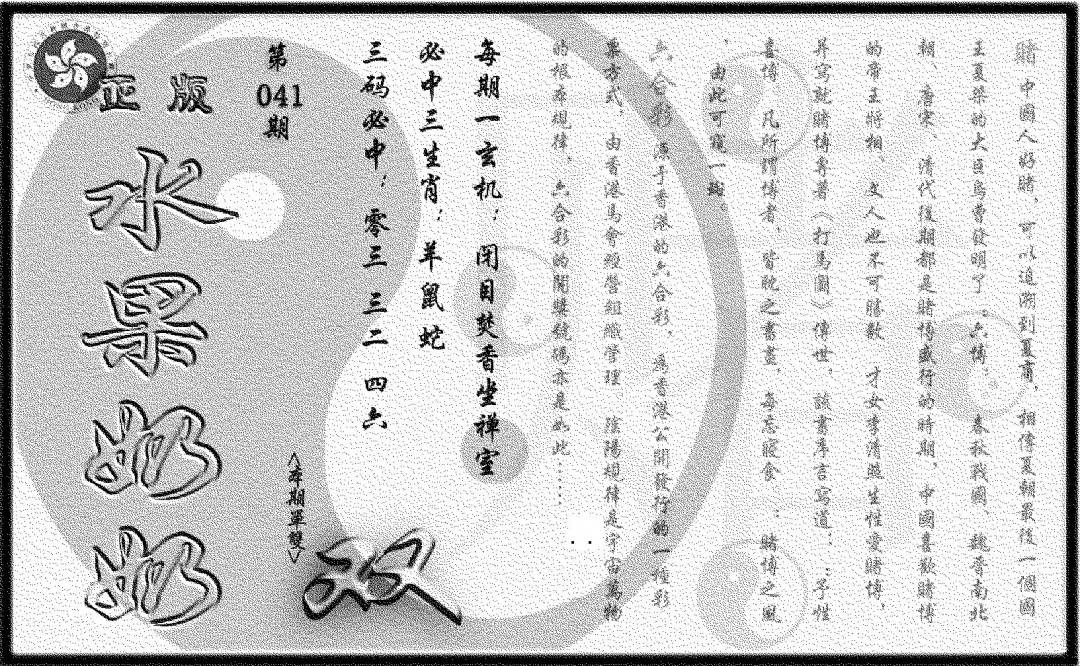 賭 中國人好賭，可以追溯到夏商，相傳夏朝最後一個國
王夏桀的大臣烏曹發明了：六博。 春秋戰國、魏晋南北
朝、唐宋、清代後期都是賭博盛行的時期，中國喜歡賭博
的帝王將相 文人也不可勝數 才女李清照生性愛賭博，
并寫就賭博專著《打馬圖》傳世，該書序言寫道：：予性
喜博，凡所謂博者，皆耽之晝夜，每忘寢食 ：賭博之風
，由此可窺一斑。
六合彩 源于香港的六合彩，爲香港公開發行的一種彩
票方式，由香港馬會經營組織管理 陰陽規律是宇宙萬物
的根本規律，六合彩的開獎號碼亦是如此……
每期一玄机：閉目焚香坐禅室
必中三生肖：羊鼠蛇
三码必中：零三 三二 四六
第
041
期
<本期單雙>
双
正版
水果奶奶